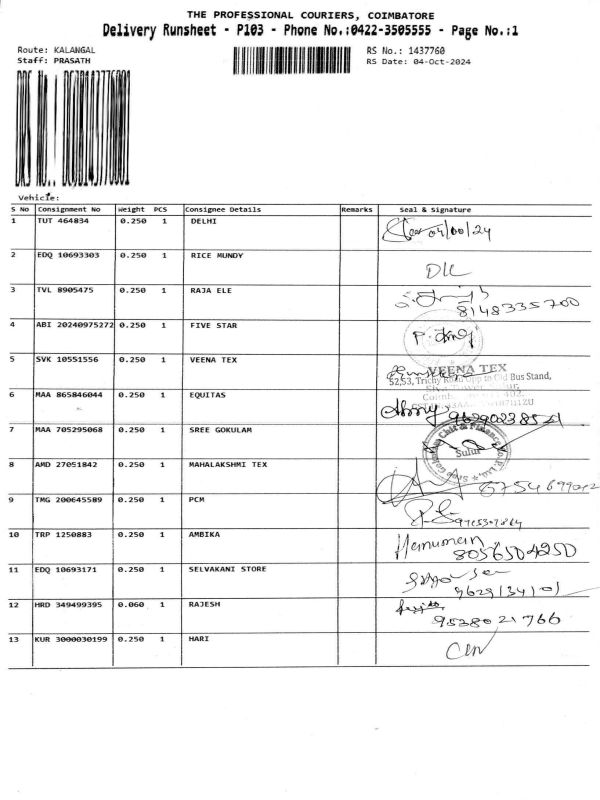 THE PROFESSIONAL COURIERS, COIMBATORE
Delivery Runsheet - P103 - Phone No.:0422-3505555 - Page No.:1
Route: KALANGAL RS No.: 1437760
Staff: PRASATH RS Date: 04-Oct-2024
Vehicle:
S No Consignment No Weight PCS Consignee Details Remarks Seal & Signature
1 TUT 464834 0.250 1 DELHI
2 EDQ 10693303 0.250 1 RICE MUNDY
3 TVL 8905475 0.250 1 RAJA ELE 8148335700
4 ABI 20240975272 0.250 1 FIVE STAR
5 SVK 10551556 0.250 1 VEENA TEX VEENA TEX
52,53, Trichy Road Opp to Old Bus Stand,
6 MAA 865846044 0.250 1 EQUITAS
7 MAA 705295068 0.250 1 SREE GOKULAM Sulur
8 AMD 27051842 0.250 1 MAHALAKSHMI TEX
9 TMG 200645589 0.250 1 PCM
10 TRP 1250883 0.250 1 AMBIKA Hanuman
8056504250
11 EDQ 10693171 0.250 1 SELVAKANI STORE
9629134101
12 HRD 349499395 0.060 1 RAJESH
9538021766
13 KUR 3000030199 0.250 1 HARI